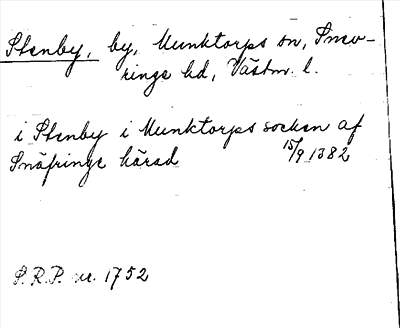 Stenby, by, Munktorps sn, Snev-
ringe hd, Västm. l.
i Stenby i Munktorps socken af
Snäfringe härad 15/9 1382
S.R.P. nr. 1752